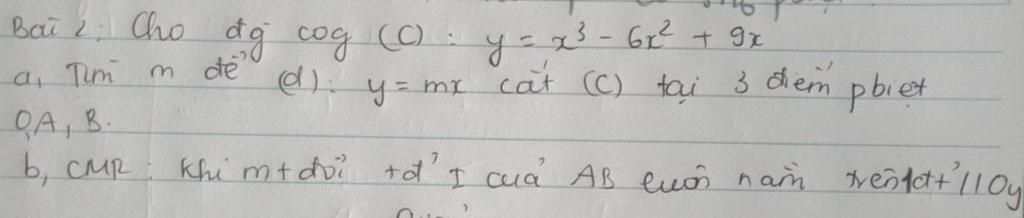 Bài 2: Cho đg cog (C): y = x³ - 6x² + 9x
a, Tìm m để (d): y = mx cắt (C) tại 3 điểm pbiệt
O,A, B.
b, CMR: Khi m t đổi tđ' I của AB luôn nằm trên 1đt' // Oy